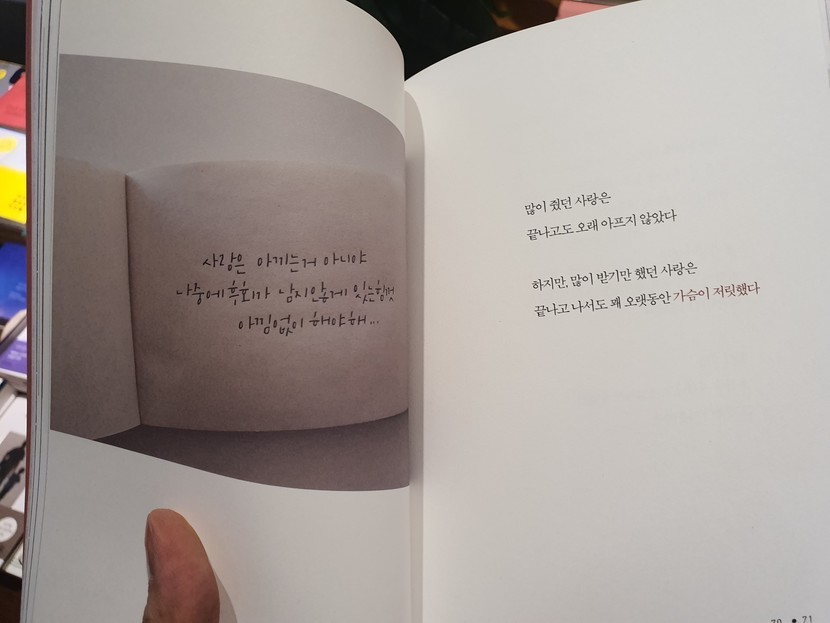 사랑은 아끼는거 아니야
나중에 후회가 남지않게 있는힘껏
아낌없이 해야해...
많이 줬던 사랑은
끝나고도 오래 아프지 않았다
하지만, 많이 받기만 했던 사랑은
끝나고 나서도 꽤 오랫동안 가슴이 저릿했다
70 • 71